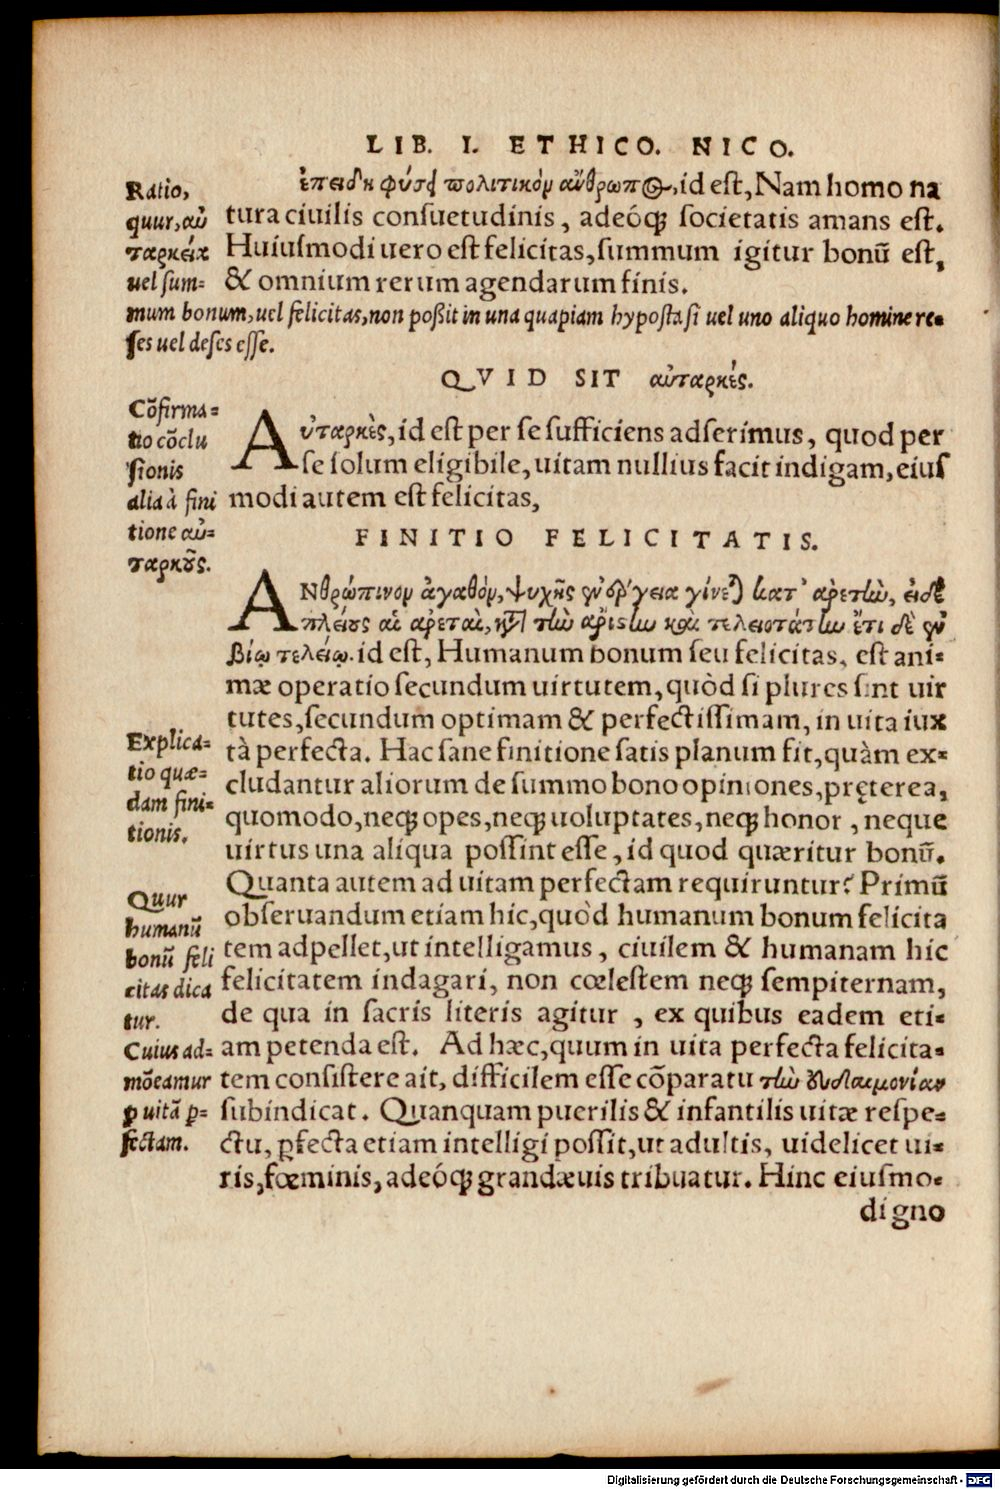 LIB. I. ETHICO. NICO.
Ratio,
quur, αὐ
ταρκεία
uel sum-
mum bonum, uel felicitas, non poßit in una quapiam hypostasi uel uno aliquo homine re-
ses uel deses esse.
ἐπειδὴ φύσει πολιτικὸν ἄνθρωπος, id est, Nam homo na
tura ciuilis consuetudinis, adeóq́ue societatis amans est.
Huiusmodi uero est felicitas, summum igitur bonũ est,
& omnium rerum agendarum finis.
QVID SIT αὐταρκές.
Cõfirma-
tio cõclu
sionis
alia à fini
tione αὐ-
ταρκοῦς.
Αὐταρκὲς, id est per se sufficiens adserimus, quod per
se solum eligibile, uitam nullius facit indigam, eius
modi autem est felicitas,
FINITIO FELICITATIS.
ΑΝθρώπινον ἀγαθὸν, ψυχῆς ἐνέργεια γίνεται κατ' ἀρετὴν, εἰ δὲ
πλείους αἱ ἀρεταὶ, κατὰ τὴν ἀρίστην καὶ τελειοτάτην ἔτι δὲ ἐν
βίῳ τελείῳ. id est, Humanum bonum seu felicitas, est ani-
mæ operatio secundum uirtutem, quòd si plures sint uir
tutes, secundum optimam & perfectissimam, in uita iux
tà perfecta. Hac sane finitione satis planum fit, quàm ex-
cludantur aliorum de summo bono opiniones, pręterea,
quomodo, neq; opes, neq; uoluptates, neq; honor, neque
uirtus una aliqua possint esse, id quod quæritur bonũ.
Quanta autem ad uitam perfectam requiruntur? Primũ
obseruandum etiam hic, quòd humanum bonum felicita
tem adpellet, ut intelligamus, ciuilem & humanam hic
felicitatem indagari, non cœlestem neq; sempiternam,
de qua in sacris literis agitur, ex quibus eadem eti-
am petenda est. Ad hæc, quum in uita perfecta felicita-
tem consistere ait, difficilem esse cõparatu τὴν εὐδαιμονίαν
subindicat. Quanquam puerilis & infantilis uitæ respe-
ctu, ꝑfecta etiam intelligi possit, ut adultis, uidelicet ui-
ris, fœminis, adeóq́ue grandæuis tribuatur. Hinc eiusmo-
di gno
Explica-
tio quæ-
dam fini-
tionis.
Quur
humanũ
bonũ feli
citas dica
tur.
Cuius ad-
mõeamur
ꝑ uitã ꝑ-
fectam.
Digitalisierung gefördert durch die Deutsche Forschungsgemeinschaft - DFG